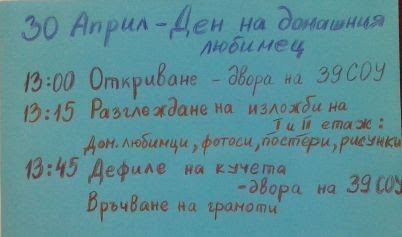 30 Април - Ден на домашния
любимец
13:00 Откриване - двора на 39 СОУ
13:15 Разглеждане на изложби на
I и II етаж:
Дом. любимци, фотоси, постери, рисунки
13:45 Дефиле на кучета
- двора на 39 СОУ
Връчване на грамоти